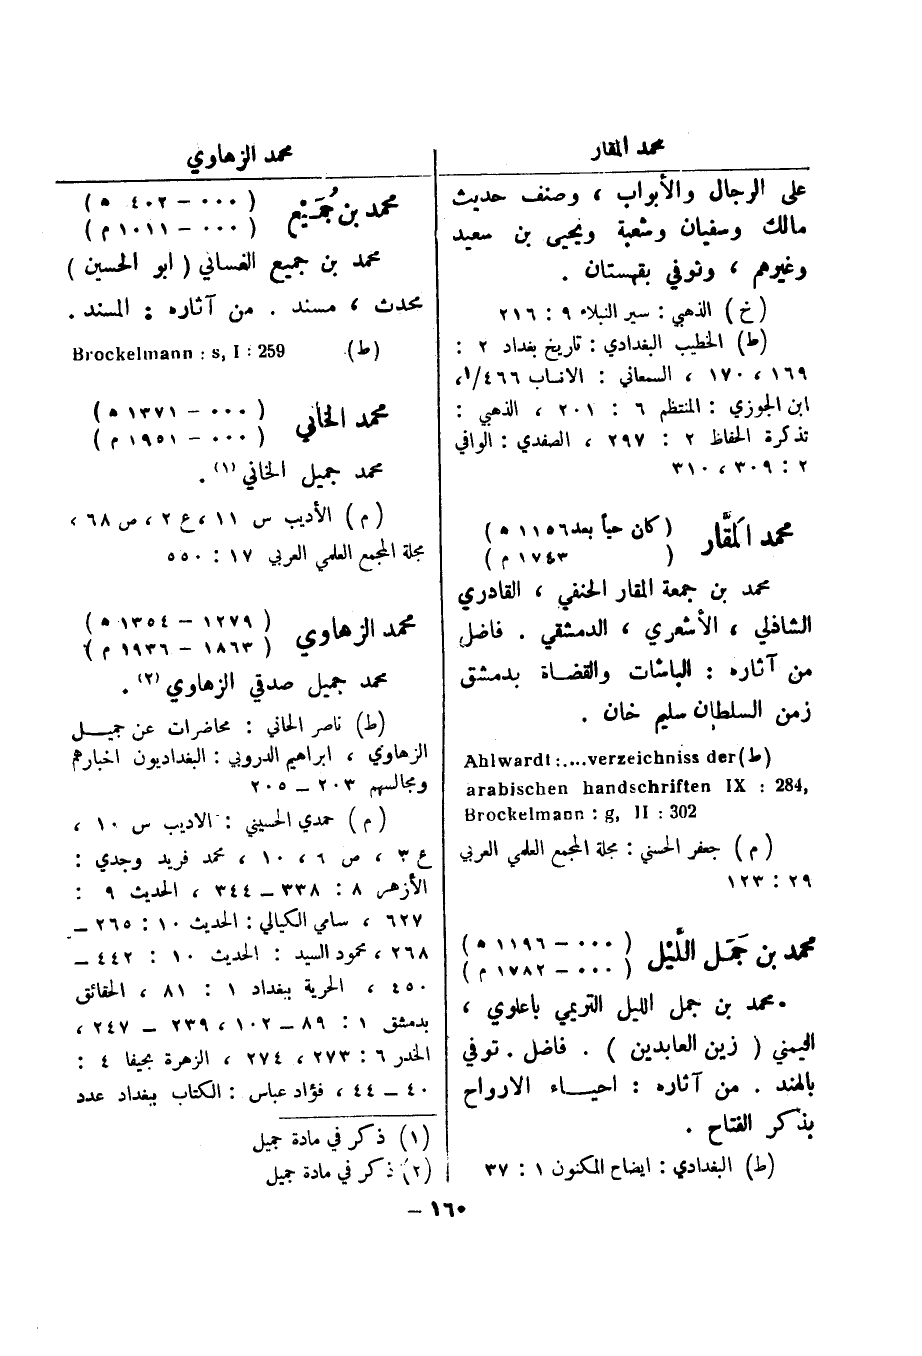 محمد المقار
على الرجال والأبواب ، وصنف حديث
مالك وسفيان وشعبة ويحيى بن سعيد
وغيرهم ، وتوفي بقهستان .
( خ ) الذهبي : سير النبلاء ٩ : ٢١٦
(ط) الخطيب البغدادي : تاريخ بغداد ٢ :
١٦٩ ، ١٧٠ ، السمعاني : الانساب ٤٦٦/١،
ابن الجوزي : المنتظم ٦ : ٢٠١ ، الذهبي :
تذكرة الحفاظ ٢ : ٢٩٧ ، الصفدي : الوافي
٢ : ٣٠٩ ، ٣١٠
محمد المَقَّار ( كان حياً بعد ١١٥٦ ه )
( ١٧٤٣ م )
محمد بن جمعة المقار الحنفي ، القادري
الشاذلي ، الأشعري ، الدمشقي . فاضل
من آثاره : الباشات والقضاة بدمشق
زمن السلطان سليم خان .
(ط) Ahlwardt :....verzeichniss der
arabischen handschriften IX : 284,
Brockelmann : g, II : 302
( م ) جعفر الحسني : مجلة المجمع العلمي العربي
٢٩ : ١٢٣
محمد بن جَمَل اللَّيْل ( ٠٠٠ – ١١٩٦ ه )
( ٠٠٠ – ١٧٨٢ م )
محمد بن جمل الليل التريمي باعلوي ،
اليمني ( زين العابدين ) . فاضل . توفي
بالهند . من آثاره : احياء الارواح
بذكر الفتاح .
(ط) البغدادي : ايضاح المكنون ١ : ٣٧
محمد الزهاوي
محمد بن جُمَيْع ( ٠٠٠ – ٤٠٢ ه )
( ٠٠٠ – ١٠١١ م )
محمد بن جميع الغساني ( ابو الحسين )
محدث ، مسند . من آثاره : المسند .
(ط) Brockelmann : s, I : 259
محمد الخاني ( ٠٠٠ – ١٣٧١ ه )
( ٠٠٠ – ١٩٥١ م )
محمد جميل الخاني (١) .
( م ) الأديب س ١١ ، ع ٢ ، ص ٦٨ ،
مجلة المجمع العلمي العربي ١٧ : ٥٥٠
محمد الزهاوي ( ١٢٧٩ – ١٣٥٤ ه )
( ١٨٦٣ – ١٩٣٦ م )
محمد جميل صدقي الزهاوي (٢) .
(ط) ناصر الحاني : محاضرات عن جميل
الزهاوي ، ابراهيم الدروبي : البغداديون اخبارهم
ومجالسهم ٢٠٣ – ٢٠٥
( م ) حمدي الحسيني : الاديب س ١٠ ،
ع ٣ ، ص ٦ ، ١٠ ، محمد فريد وجدي :
الأزهر ٨ : ٣٣٨ – ٣٤٤ ، الحديث ٩ :
٦٢٧ ، سامي الكيالي : الحديث ١٠ : ٢٦٥ –
٢٦٨ ، محمود السيد : الحديث ١٠ : ٤٤٢ –
٤٥٠ ، الحرية ببغداد ١ : ٨١ ، الحقائق
بدمشق ١ : ٨٩ – ١٠٢ ، ٢٣٩ – ٢٤٧ ،
الخدر ٦ : ٢٧٣ ، ٢٧٤ ، الزهرة بحيفا ٤ :
٤٠ – ٤٤ ، فؤاد عباس : الكتاب ببغداد عدد
(١) ذكر في مادة جميل
(٢) ذكر في مادة جميل
١٦٠ –